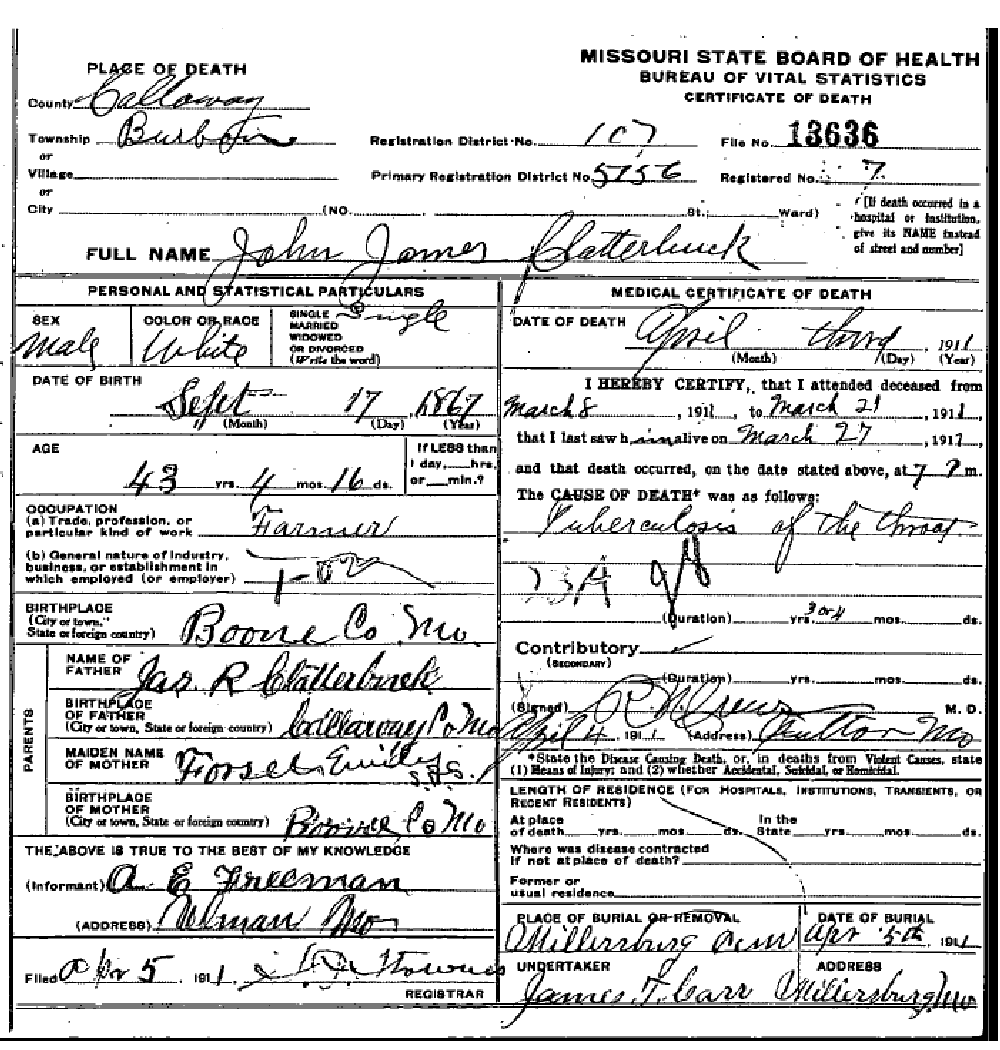 MISSOURI STATE BOARD OF HEALTH
BUREAU OF VITAL STATISTICS
CERTIFICATE OF DEATH
PLACE OF DEATH
County Callaway
Township
or
Village
or
City (NO. St; Ward)
Registration District No. 107 File No. 13636
Primary Registration District No. 5156 Registered No. 7
[If death occurred in a
hospital or institution,
give its NAME instead
of street and number]
FULL NAME John James Clatterbuck
PERSONAL AND STATISTICAL PARTICULARS
SEX
Male
COLOR OR RACE
White
SINGLE
MARRIED
WIDOWED
OR DIVORCED
(Write the word)
Single
DATE OF BIRTH
Sept 17 1867
(Month) (Day) (Year)
AGE
43 yrs. 4 mos. 16 ds.
If LESS than
1 day, hrs.
or min.?
OCCUPATION
(a) Trade, profession, or
particular kind of work Farmer
(b) General nature of industry,
business, or establishment in
which employed (or employer)
BIRTHPLACE
(City or town,
State or foreign country) Boone Co Mo
PARENTS
NAME OF
FATHER Jas. R Clatterbuck
BIRTHPLACE
OF FATHER
(City or town, State or foreign country) Callaway Co Mo
MAIDEN NAME
OF MOTHER Emily
BIRTHPLACE
OF MOTHER
(City or town, State or foreign country) Boone Co Mo
THE ABOVE IS TRUE TO THE BEST OF MY KNOWLEDGE
(Informant) A E Freeman
(ADDRESS) Ulman Mo
Filed Apr 5 1911
REGISTRAR
MEDICAL CERTIFICATE OF DEATH
DATE OF DEATH April third, 1911
(Month) (Day) (Year)
I HEREBY CERTIFY, that I attended deceased from
March 8, 1911, to March 21, 1911,
that I last saw him alive on March 27, 1911,
and that death occurred, on the date stated above, at 7 P m.
The CAUSE OF DEATH* was as follows:
Tuberculosis of the throat
23A
(Duration) yrs. 3 or 4 mos. ds.
Contributory
(SECONDARY)
(Duration) yrs. mos. ds.
(Signed) M. D.
April 4 1911 (Address) Fulton Mo
*State the Disease Causing Death, or, in deaths from Violent Causes, state
(1) Means of Injury; and (2) whether Accidental, Suicidal, or Homicidal.
LENGTH OF RESIDENCE (FOR HOSPITALS, INSTITUTIONS, TRANSIENTS, OR
RECENT RESIDENTS)
At place
of death yrs. mos. ds.
In the
State yrs. mos. ds.
Where was disease contracted
If not at place of death?
Former or
usual residence
PLACE OF BURIAL OR REMOVAL
Millersburg Cem
DATE OF BURIAL
Apr 5th, 1911
UNDERTAKER
James T. Carr
ADDRESS
Millersburg Mo